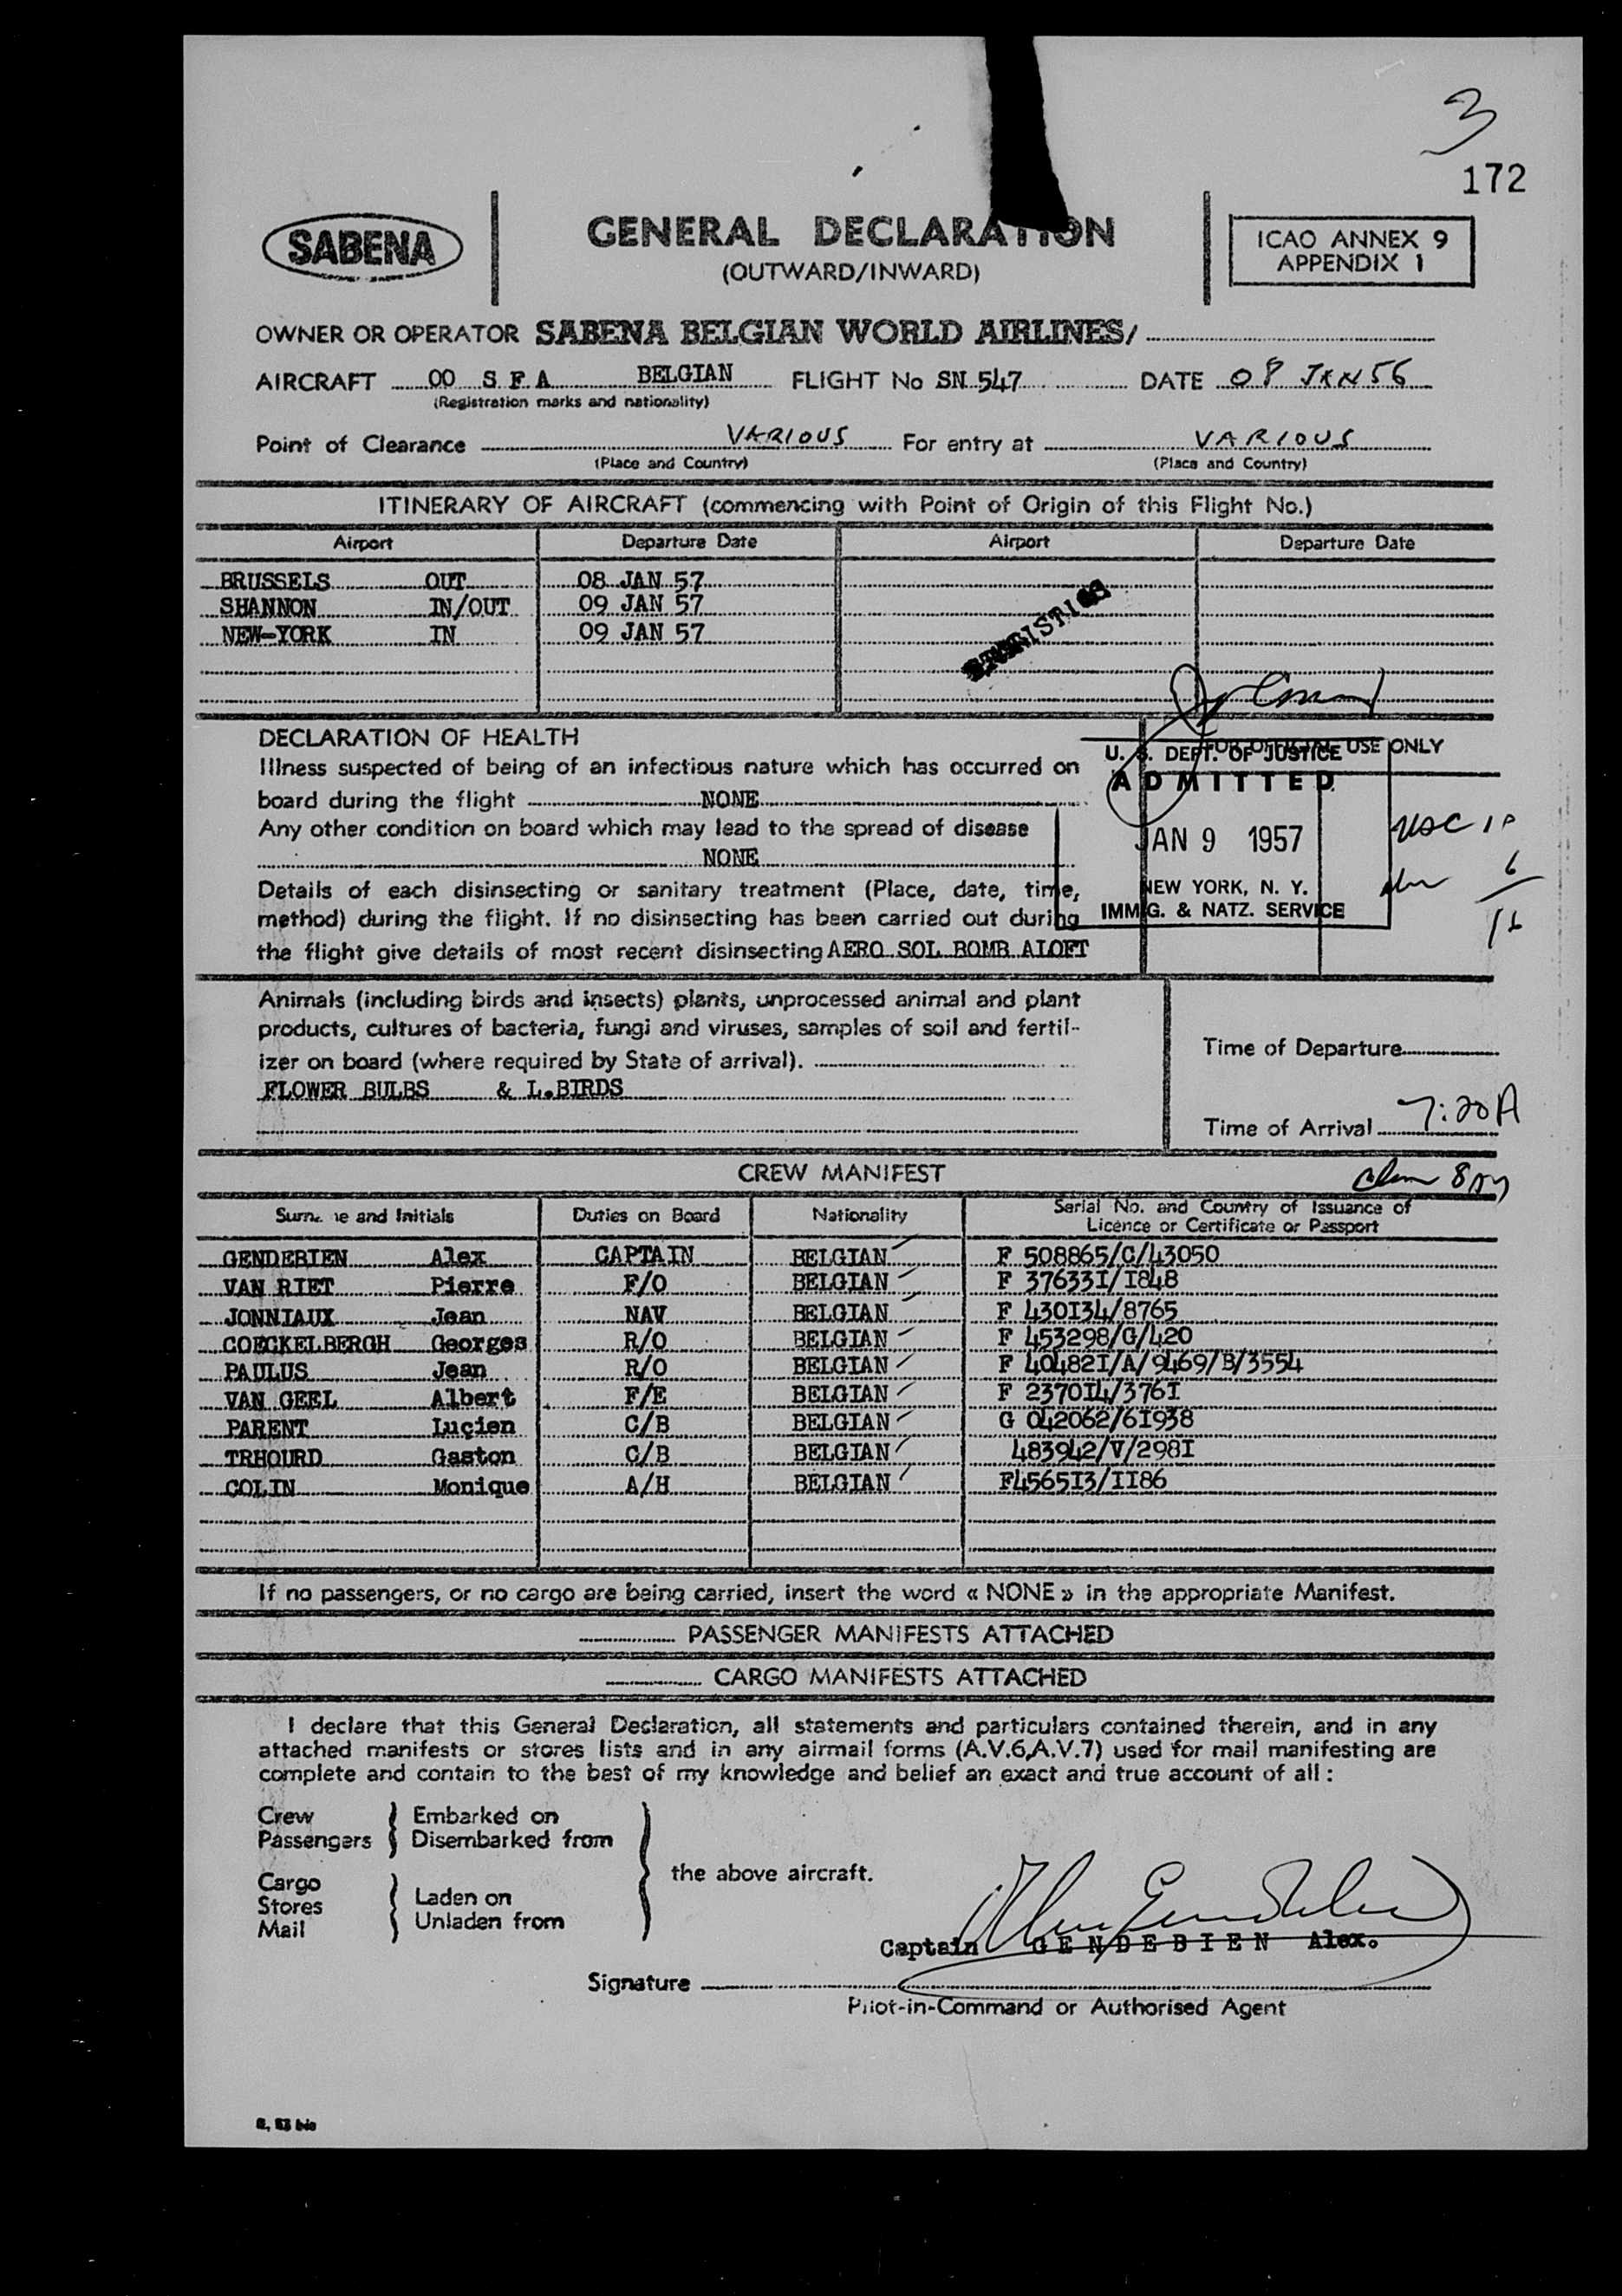 3
172
SABENA
GENERAL DECLARATION
(OUTWARD/INWARD)
ICAO ANNEX 9
APPENDIX 1
OWNER OR OPERATOR SABENA BELGIAN WORLD AIRLINES/
AIRCRAFT OO S F A BELGIAN FLIGHT No SN 547 DATE 08 JAN 56
(Registration marks and nationality)
Point of Clearance VARIOUS For entry at VARIOUS
(Place and Country) (Place and Country)
ITINERARY OF AIRCRAFT (commencing with Point of Origin of this Flight No.)
Airport Departure Date Airport Departure Date
BRUSSELS OUT 08 JAN 57
SHANNON IN/OUT 09 JAN 57
NEW-YORK IN 09 JAN 57
DECLARATION OF HEALTH
Illness suspected of being of an infectious nature which has occurred on
board during the flight NONE
Any other condition on board which may lead to the spread of disease
NONE
Details of each disinsecting or sanitary treatment (Place, date, time,
method) during the flight. If no disinsecting has been carried out during
the flight give details of most recent disinsecting AERO SOL BOMB ALOFT
FOR OFFICIAL USE ONLY
U. S. DEPT. OF JUSTICE
ADMITTED
JAN 9 1957
NEW YORK, N. Y.
IMMIG. & NATZ. SERVICE
Animals (including birds and insects) plants, unprocessed animal and plant
products, cultures of bacteria, fungi and viruses, samples of soil and fertil-
izer on board (where required by State of arrival).
FLOWER BULBS & L.BIRDS
Time of Departure
Time of Arrival 7:20A
CREW MANIFEST
Surname and Initials Duties on Board Nationality Serial No. and Country of Issuance of
Licence or Certificate or Passport
GENDEBIEN Alex CAPTAIN BELGIAN F 508865/C/43050
VAN RIET Pierre F/O BELGIAN F 37633I/I848
JONNIAUX Jean NAV BELGIAN F 430I34/8765
COECKELBERGH Georges R/O BELGIAN F 453298/G/420
PAULUS Jean R/O BELGIAN F 40482I/A/9469/B/3554
VAN GEEL Albert F/E BELGIAN F 2370I4/376I
PARENT Lucien C/B BELGIAN G 042062/6I938
TRHOURD Gaston C/B BELGIAN 483942/V/298I
COLIN Monique A/H BELGIAN F4565I3/II86
If no passengers, or no cargo are being carried, insert the word « NONE » in the appropriate Manifest.
PASSENGER MANIFESTS ATTACHED
CARGO MANIFESTS ATTACHED
I declare that this General Declaration, all statements and particulars contained therein, and in any
attached manifests or stores lists and in any airmail forms (A.V.6,A.V.7) used for mail manifesting are
complete and contain to the best of my knowledge and belief an exact and true account of all :
Crew
Passengers
Embarked on
Disembarked from
Cargo
Stores
Mail
Laden on
Unladen from
the above aircraft.
Captain GENDEBIEN Alex.
Signature
Pilot-in-Command or Authorised Agent